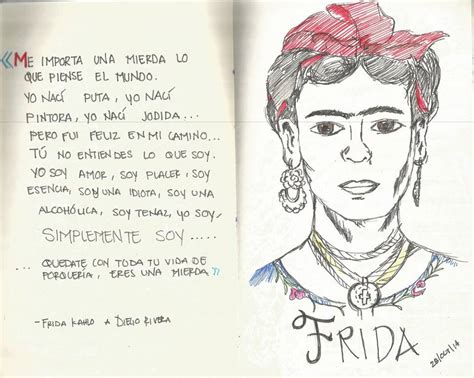 «ME IMPORTA UNA MIERDA LO
QUE PIENSE EL MUNDO.
YO NACÍ PUTA, YO NACÍ
PINTORA, YO NACÍ JODIDA...
PERO FUI FELIZ EN MI CAMINO...
TÚ NO ENTIENDES LO QUE SOY.
YO SOY AMOR, SOY PLACER, SOY
ESENCIA, SOY UNA IDIOTA, SOY UNA
ALCOHÓLICA, SOY TENAZ, YO SOY,
SIMPLEMENTE SOY.....
... QUEDATE CON TODA TU VIDA DE
PORQUERÍA, ERES UNA MIERDA»
-FRIDA KAHLO A DIEGO RIVERA
FRIDA
28/OCT/14